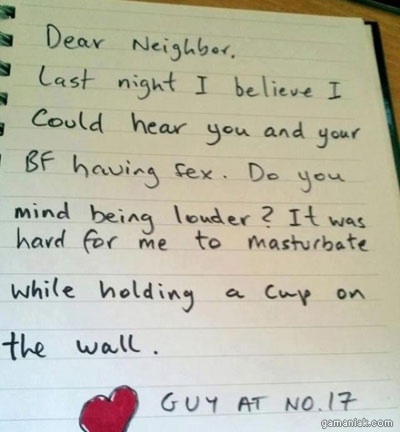 Dear Neighbor.
Last night I believe I
Could hear you and your
BF having sex. Do you
mind being louder? It was
hard for me to masturbate
while holding a cup on
the wall.
GUY AT NO.17
gamaniak.com